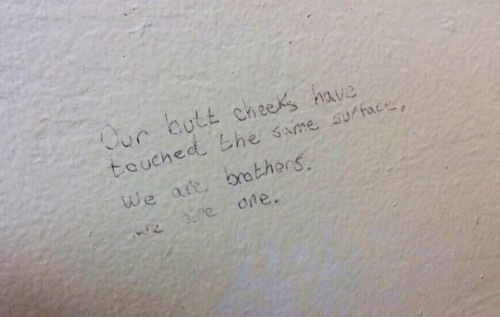 Our butt cheeks have
touched the same surface.
We are brothers.
we are one.